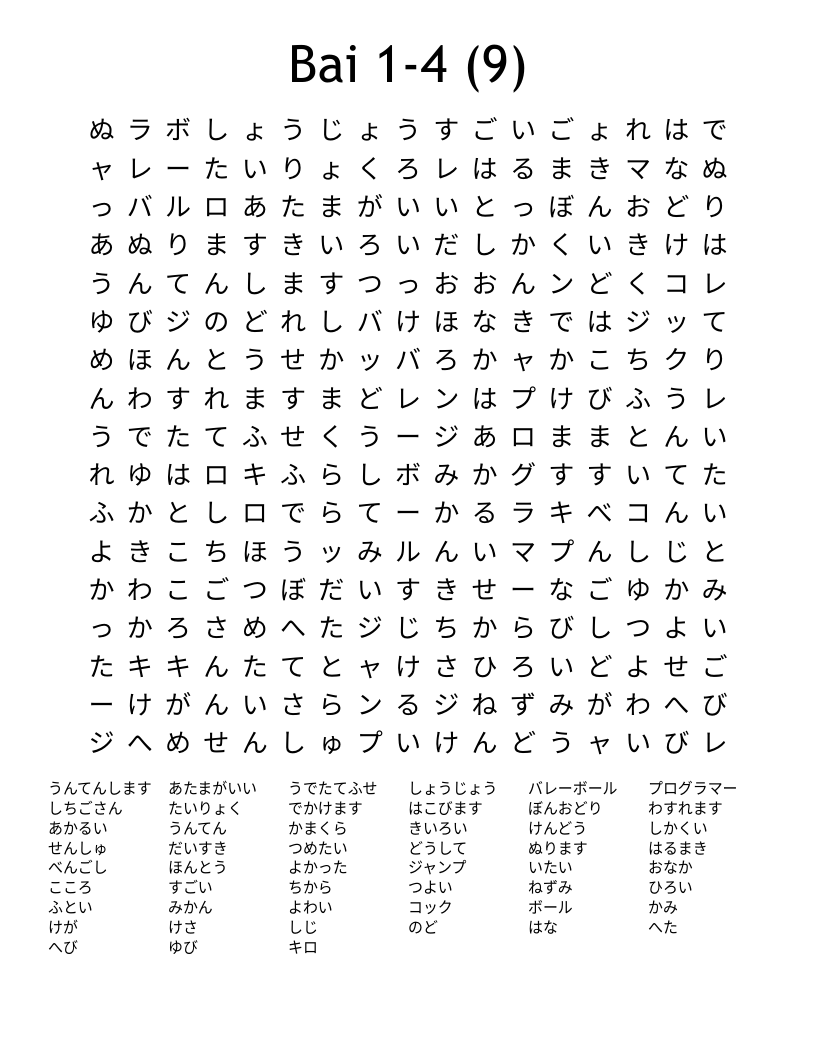 Bai 1-4 (9)
ぬ ラ ボ し ょ う じ ょ う す ご い ご ょ れ は で
ャ レ ー た い り ょ く ろ レ は る ま き マ な ぬ
っ バ ル ロ あ た ま が い い と っ ぼ ん お ど り
あ ぬ り ま す き い ろ い だ し か く い き け は
う ん て ん し ま す つ っ お お ん ン ど く コ レ
ゆ び ジ の ど れ し バ け ほ な き で は ジ ッ て
め ほ ん と う せ か ッ バ ろ か ャ か こ ち ク り
ん わ す れ ま す ま ど レ ン は プ け び ふ う レ
う で た て ふ せ く う ー ジ あ ロ ま ま と ん い
れ ゆ は ロ キ ふ ら し ボ み か グ す す い て た
ふ か と し ロ で ら て ー か る ラ キ べ コ ん い
よ き こ ち ほ う ッ み ル ん い マ プ ん し じ と
か わ こ ご つ ぼ だ い す き せ ー な ご ゆ か み
っ か ろ さ め へ た ジ じ ち か ら び し つ よ い
た キ キ ん た て と ャ け さ ひ ろ い ど よ せ ご
ー け が ん い さ ら ン る ジ ね ず み が わ へ び
ジ へ め せ ん し ゅ プ い け ん ど う ャ い び レ
うんてんします あたまがいい うでたてふせ しょうじょう バレーボール プログラマー
しちごさん たいりょく でかけます はこびます ぼんおどり わすれます
あかるい うんてん かまくら きいろい けんどう しかくい
せんしゅ だいすき つめたい どうして ぬります はるまき
べんごし ほんとう よかった ジャンプ いたい おなか
こころ すごい ちから つよい ねずみ ひろい
ふとい みかん よわい コック ボール かみ
けが けさ しじ のど はな へた
へび ゆび キロ